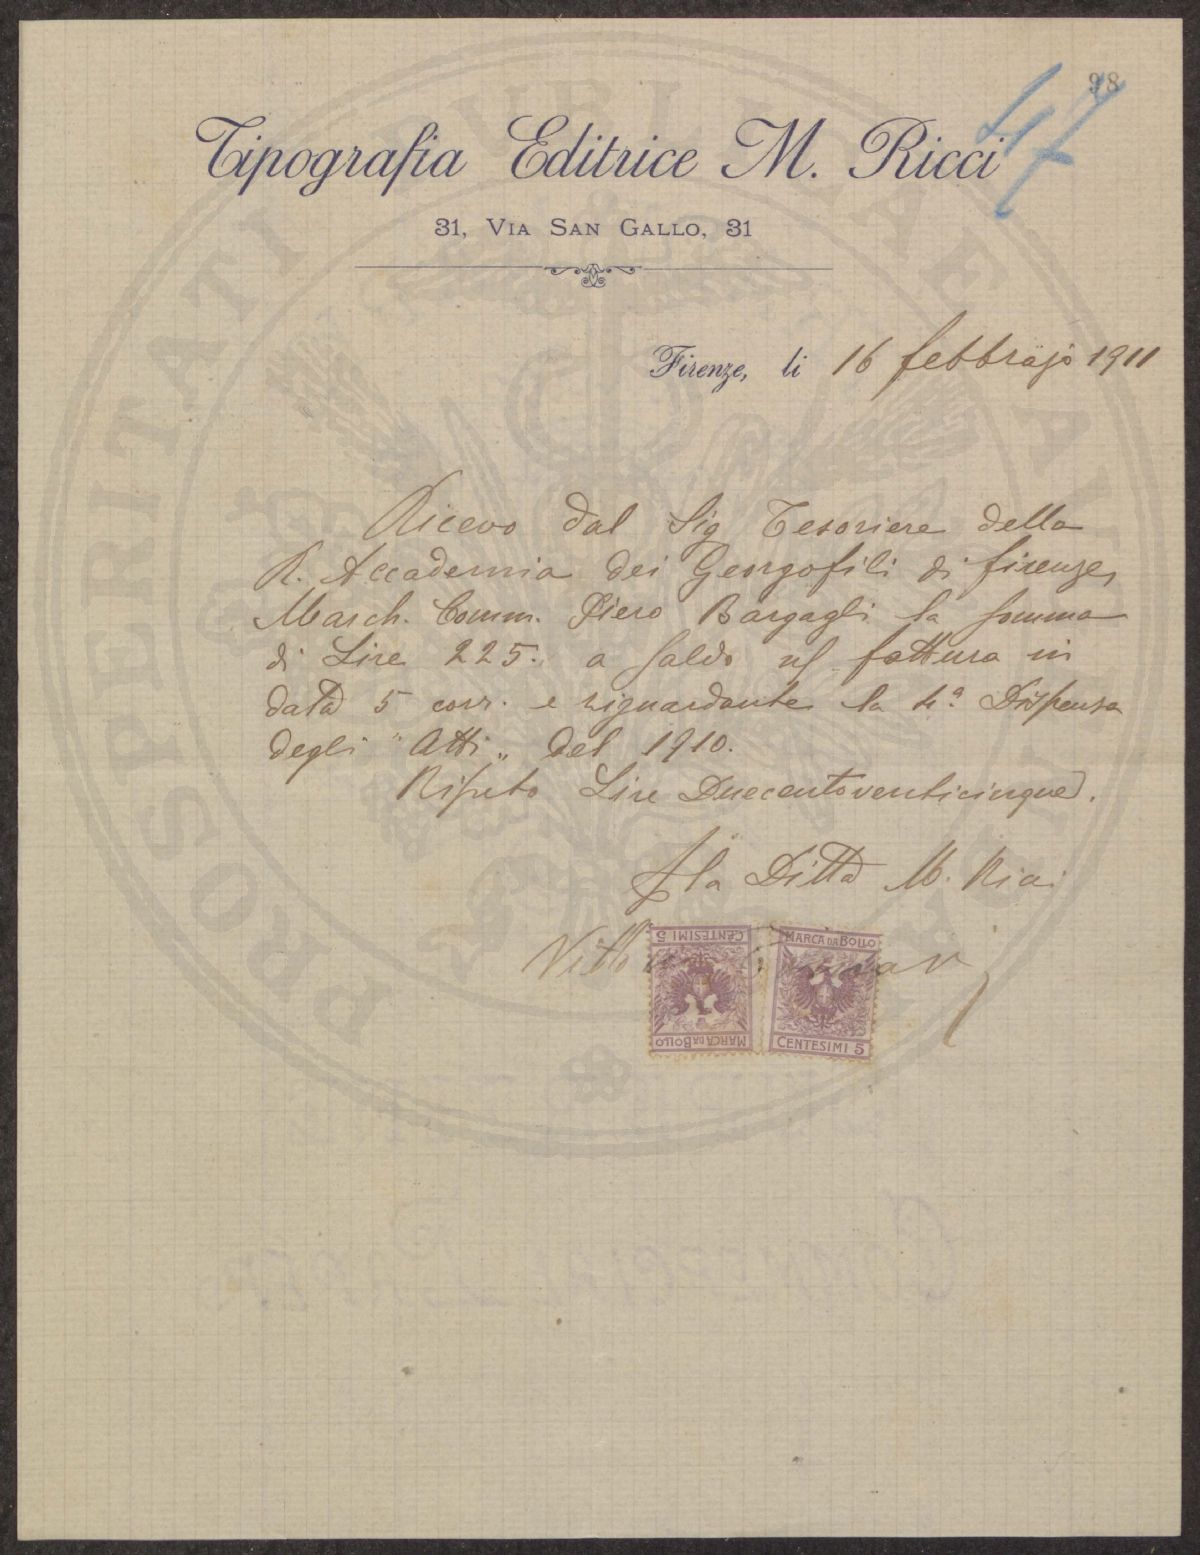 98
47
Tipografia Editrice M. Ricci
31, Via San Gallo, 31
Firenze, li 16 febbrajo 1911
Ricevo dal Sig Tesoriere della
R. Accademia dei Georgofili di firenze,
March. Comm. Piero Bargagli la somma
di Lire 225. a saldo n/ fattura in
data 5 corr. e riguardante la 4ª Dispensa
degli "Atti" del 1910.
Ripeto Lire Duecentoventicinque.
p la Ditta M. Ricci
CENTESIMI 5
MARCA DA BOLLO
MARCA DA BOLLO
CENTESIMI 5
PROSPERITATI PUBLICAE AUGENDAE